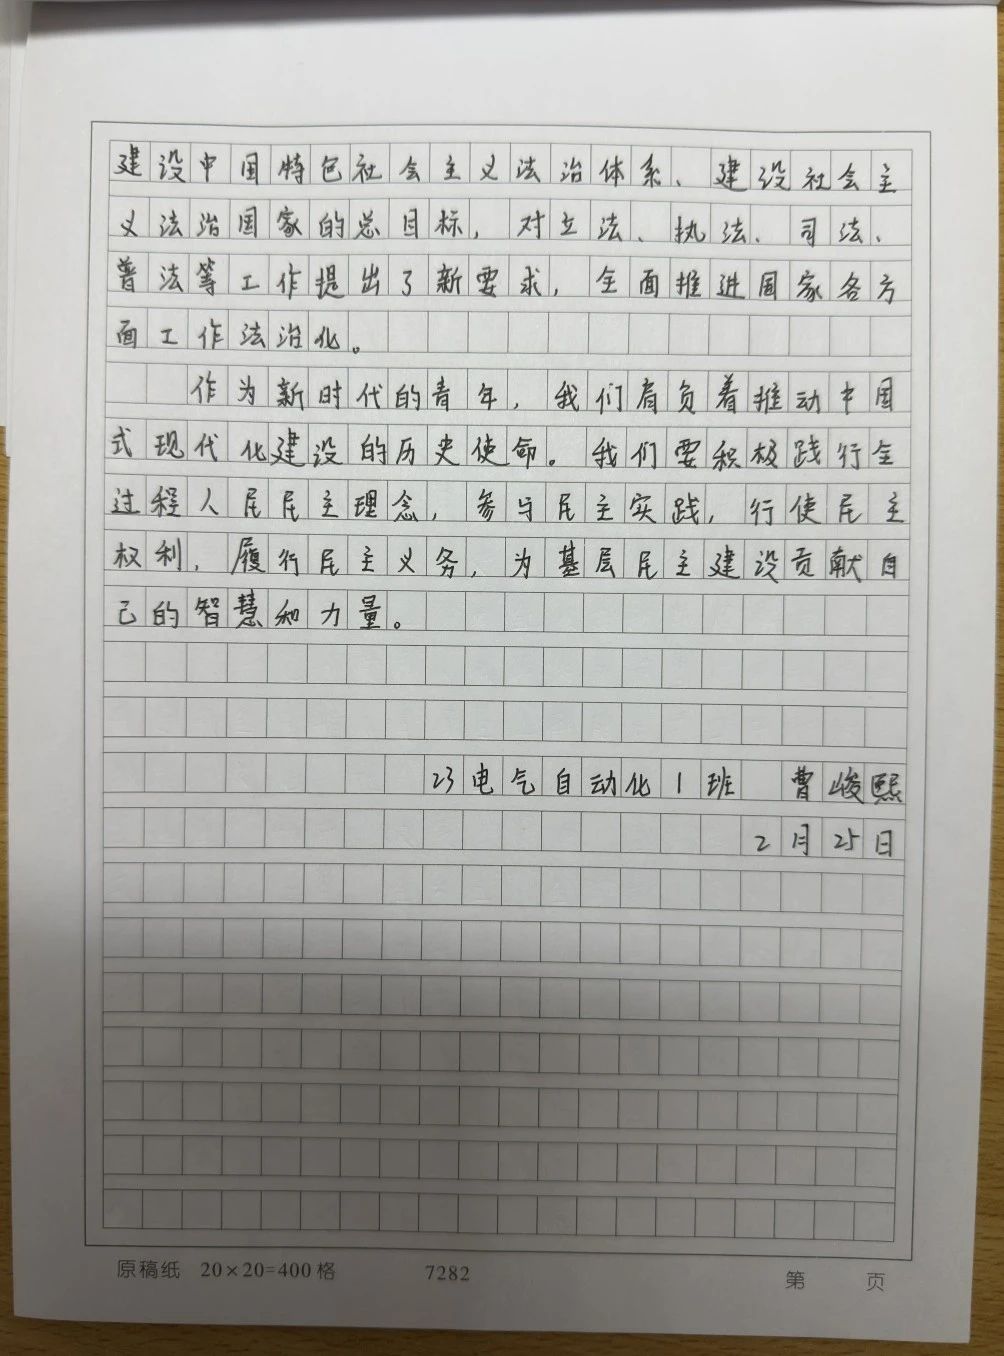 建设中国特色社会主义法治体系、建设社会主
义法治国家的总目标，对立法、执法、司法、
普法等工作提出了新要求，全面推进国家各方
面工作法治化。
作为新时代的青年，我们肩负着推动中国
式现代化建设的历史使命。我们要积极践行全
过程人民民主理念，参与民主实践，行使民主
权利，履行民主义务，为基层民主建设贡献自
己的智慧和力量。
23电气自动化1班 曹峻熙
2月25日
原稿纸 20×20=400格 7282 第 页